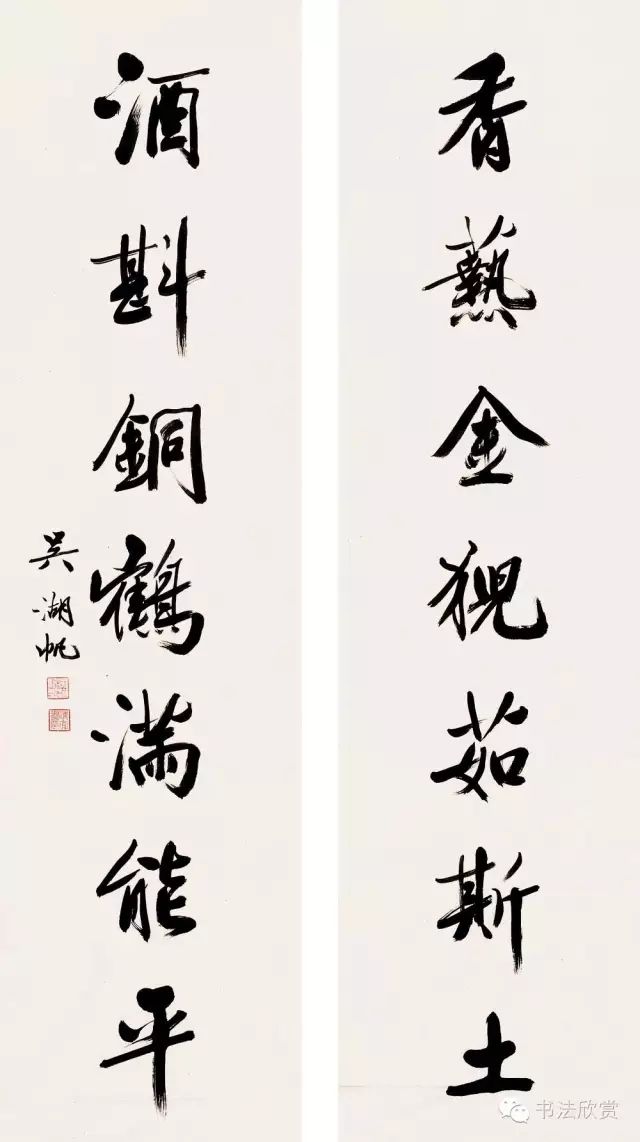 香爇金猊茹斯土
酒斟銅鶴滿能平
吳湖帆
书法欣赏